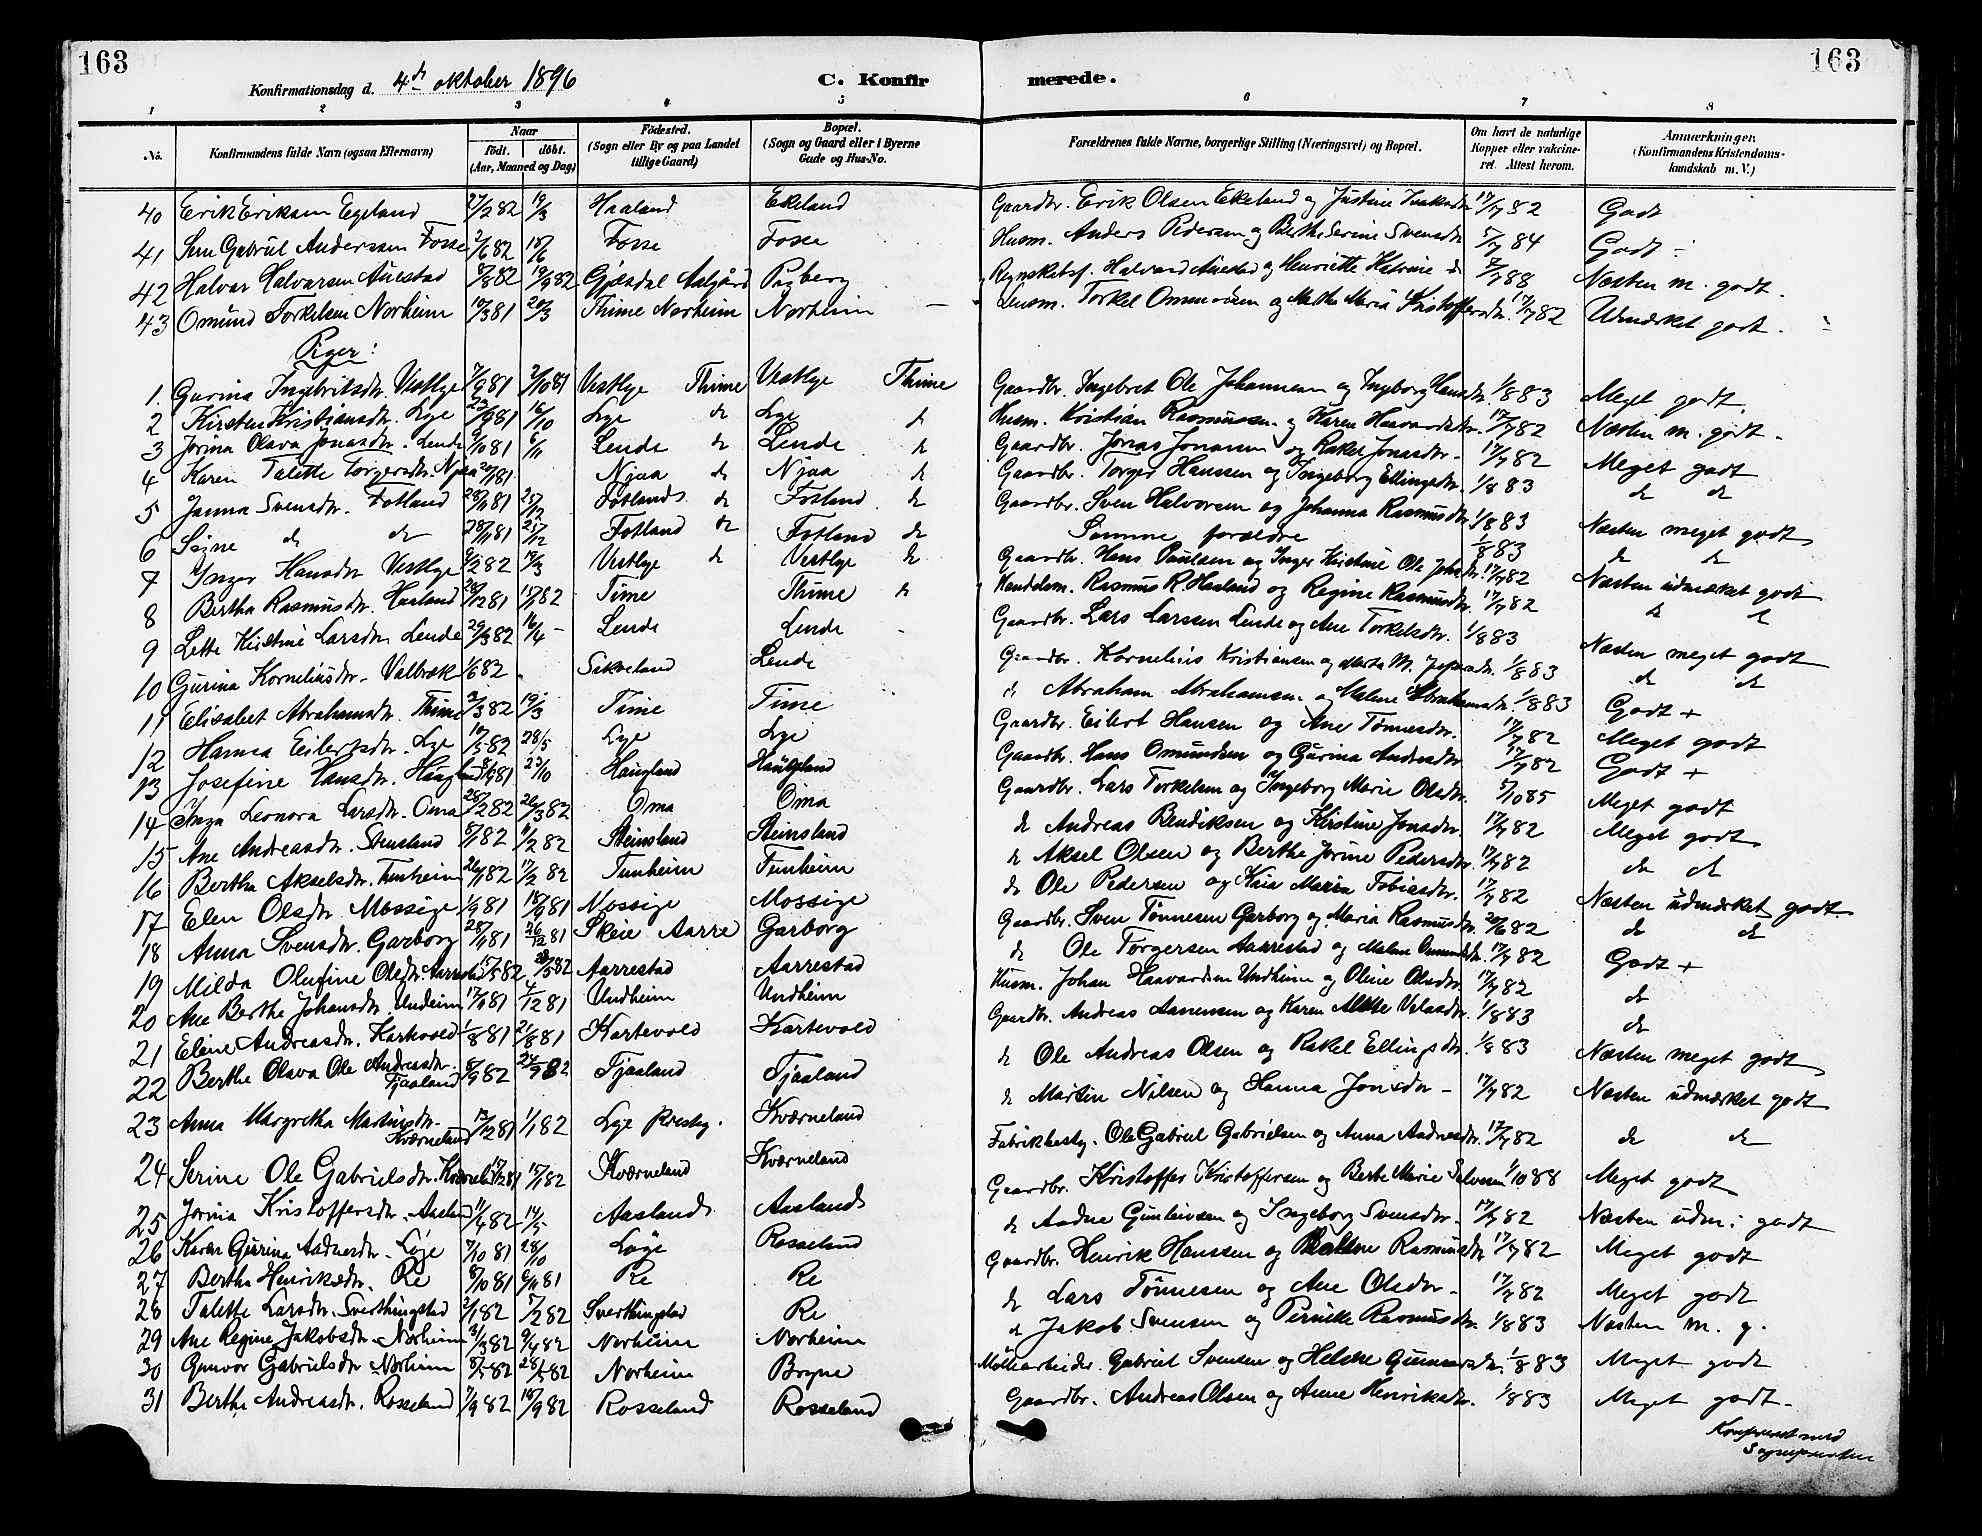 163
163
Konfirmationsdag d. 4de oktober 1896
C. Konfir merede.
1 2 3 4 5 6 7 8
No. Konfirmandens fulde Navn (ogsaa Efternavn) Naar født. døbt. (Aar, Maaned og Dag) Fødested. (Sogn eller By og paa Landet tillige Gaard) Bopæl. (Sogn og Gaard eller i Byerne Gade og Hus-No. Forældrenes fulde Navne, borgerlige Stilling (Næringsvei) og Bopæl. Om havt de naturlige Kopper eller vakcineret. Attest herom. Anmærkninger. (Konfirmandens Kristendomskundskab m. V.)
40 Erik Eriksen Egeland 27/2 82 19/3 Haaland Ekeland Gaardbr. Erik Olsen Ekeland og Justine Isaksdtr 17/7 82 Godt
41 Sem Gabriel Anderssen Fosse 2/6 82 18/6 Fosse Fosse Husm. Anders Pedersen og Berthe Serine Svensdtr 5/7 84 Godt
42 Halvar Halvorsen Auestad 8/8 82 19/9 82 Gjesdal Aalgård Regnskabsf. Halvard Auestad og Henriette Katrine 7/7 88 Næsten m. godt.
43 Omund Torkelsen Norheim 10/3 81 20/3 Thime Norheim Norheim Lensm. Torkel Ommundsen og Malthe Maria Kristoffersdtr. 17/7 82 Udmærket godt.
Piger:
1. Gurina Ingebritsdtr. Vestlye 7/9 81 2/10 81 Vestlye Thime Vestlye Thime Gaardbr. Ingebret Ole Johannesen og Ingeborg Hansdtr. 1/8 83 Meget godt.
2 Kirsten Kristiansdtr. Lye 23/9 81 16/10 Lye do Lye do Husm. Kristian Rasmussen og Karen Haavardsdtr. 17/7 82 Næsten m. godt.
3 Jorina Olava Jonasdtr. Lende 9/10 81 6/11 Lende do Lende do Gaardbr. Jonas Jonassen og Rakel Jonasdtr. 17/7 82 Meget godt
4 Karen Talette Torgersdtr. Njaa 20/1 81 Njaa do Njaa do Gaardbr. Torger Hanssen og Ingeborg Ellingsdtr. 1/8 83 do do
5 Janna Svensdtr. Fotland 28/11 81 25/12 Fotland do Fotland do Gaardbr. Sven Halvorsen og Johanna Rasmusdtr. 1/8 83 Næsten meget godt
6 Signe do do 28/11 81 25/12 Fotland do Fotland do Samme forældre 1/8 83 do do
7 Inger Hansdtr Vestlye 9/2 82 19/3 Vestlye do Vestlye do Gaardbr. Hans Paulsen og Inger Kirstine Ole Johsdtr. 17/7 82 Næsten udmærket godt
8 Bertha Rasmusdtr. Haaland 20/12 81 15/1 82 Time Thime do Handelsm. Rasmus R. Haaland og Regine Rasmusdtr. 17/7 82 do do
9 Lette Kirstine Larsdtr. Lende 29/3 82 16/4 Lende Lende Gaardbr. Lars Larssen Lende og Ane Torkelsdtr. 1/8 83 Næsten meget godt
10 Gurina Korneliusdtr. Valbræk 1/6 82 Lende Gaardbr. Kornelius Kristiansen og Marta M. 1/8 83 do do
11 Elisabet Abrahamsdtr. Thime 3/3 82 19/3 Time Time do Abraham Abrahamsen og Malene Abrahamsdtr. 1/8 83 Godt +
12 Hanna Eilertsdtr. Lye 17/5 82 28/5 Lye Lye Gaardbr. Eilert Hansen og Ane Tønnesdtr. 17/7 82 Meget godt
13 Josefine Hansdtr. Haugland 81 23/10 Haugland Haugland Gaardbr. Hans Omundsen og Gurina Andersdtr 17/7 82 Godt +
14 Inga Leonora Larsdtr. Oma 28/2 82 26/3 82 Oma Oma Gaardbr. Lars Torkelsen og Ingeborg Marie Olsdtr. 5/10 85 Meget godt
15 Ane Andreasdtr. Stensland 8/1 82 11/2 82 Steinsland Steinsland do Andreas Bendiksen og Kirstine Jonsdtr. 17/7 82 Meget godt
16 Bertha Akselsdtr. Tunheim 26/1 82 17/2 82 Tunheim Tunheim do Aksel Olsen og Berthe Jorine Pedersdtr. 17/7 82 do do
17 Elen Olsdtr. Mossige 1/9 81 18/9 81 Mossige Mossige do Ole Pedersen og Kaia Maria Tobiesdtr. 17/7 82 Næsten udmærket godt
18 Anna Svensdtr. Garborg 28/11 81 26/12 81 Skeie Aarre Garborg Gaardbr. Sven Tønnesen Garborg og Maria Rasmusdtr. 20/6 82 do do
19 Milda Olufine Olsdtr. Aarrestad 15/5 82 /5 82 Aarrestad Aarrestad do Ole Torgersen Aarrestad og Malene Omundsdtr. 17/7 82 Godt +
20 Ane Berthe Johansdtr. Undeim 17/11 81 4/12 81 Undheim Undheim Husm. Johan Haavardsen Undheim og Oline Olsdtr. 17/7 82 do
21 Eline Andreasdtr. Kartevold 1/8 81 21/8 81 Kartevold Kartevold Gaardbr. Andreas Aanensen og Karen Malthe 1/8 83 do
22 Berthe Olava Ole Andreasdtr. Tjaaland 8/9 82 24/9 82 Tjaaland Tjaaland do Ole Andreas Olsen og Rakel Ellingsdtr. 1/8 83 Næsten meget godt
23 Anna Margretha Martinsdtr. Kværneland 13/12 81 1/1 82 Lye Kværneland do Martin Nilsen og Hanna Jonsdtr 17/7 82 Næsten udmærket godt
24 Serine Ole Gabrielsdtr. Kværneland 17/12 81 15/1 82 Kværneland Kværneland Fabrikbesty. Ole Gabriel Gabrielsen og Anna Aadnesdtr. 17/7 82 do do
25 Jorina Kristoffersdtr. Aasland 11/4 82 14/5 Aasland Aasland Gaardbr. Kristoffer Kristoffersen og Berthe Marie 1/10 88 Meget godt
26 Karen Gurina Aadnesdtr. Løge 7/10 81 28/10 Løge Rosseland do Aadne Gunleivsen og Ingeborg Svensdtr. 17/7 82 Næsten udm. godt
27 Bertha Henriksdtr. Re 8/10 81 6/11 81 Re Re Gaardbr. Henrik Hanssen og Rasmusdtr 17/7 82 Meget godt
28 Talette Larsdtr. Sverthingstad 2/1 82 5/2 82 Sverthingstad Re do Lars Tønnesen og Ane Olsdtr. 17/7 82 Meget godt
29 Ane Regine Jakobsdtr. Norheim 31/3 82 9/4 82 Norheim Norheim do Jakob Svensen og Pernille Rasmusdtr. 1/8 83 Næsten m. g.
30 Gunvor Gabrielsdtr. Norheim 8/5 82 28/5 82 Norheim Bryne Møllearbeider. Gabriel Svensen og Helene Gunnarsdtr. 1/8 83 Meget godt
31 Berthe Andreasdtr. Rosseland 7/9 82 18/9 82 Rosseland Rosseland Gaardbr. Andreas Olsen og Anne Henriksdtr. 1/8 83 Meget godt
Konfereret med
Sognepresten